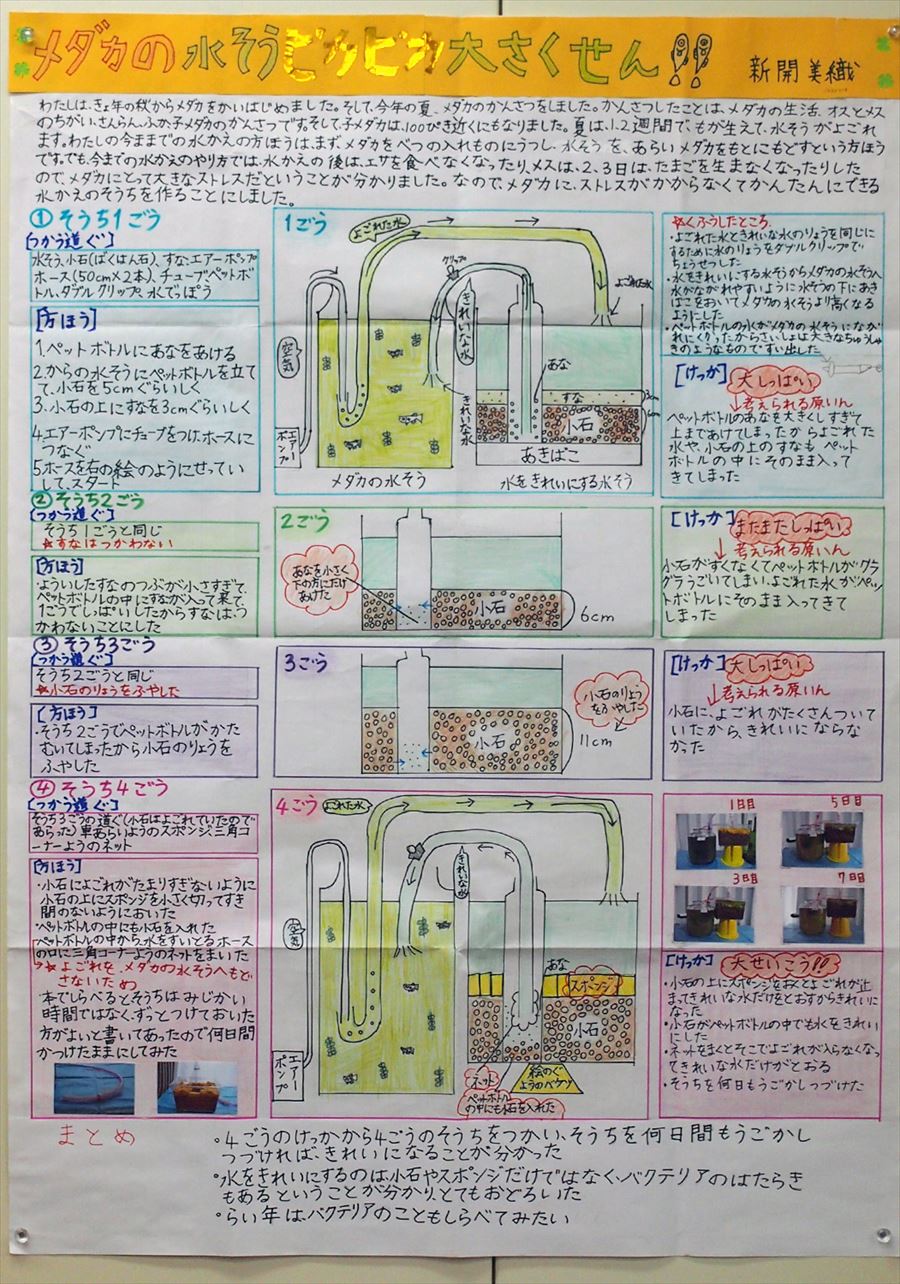 メダカの水そうピカピカ大さくせん!!
新開美織
わたしは、きょ年の秋からメダカをかいはじめました。そして、今年の夏、メダカのかんさつをしました。かんさつしたことは、メダカの生活、オスとメス
のちがい、さんらん、ふか、子メダカのかんさつです。そして、子メダカは、100ぴき近くにもなりました。夏は、1、2週間で、もが生えて、水そうがよごれ
ます。わたしの今までの水かえの方ほうは、まず、メダカをべつの入れものにうつし、水そうを、あらい、メダカをもとにもどすという方ほう
です。でも、今までの水かえのやり方では、水かえの後は、エサを食べなくなったり、メスは、2、3日は、たまごを生まなくなったりした
ので、メダカにとって大きなストレスだということが分かりました。なので、メダカに、ストレスがかからなくてかんたんにできる
水かえのそうちを作ることにしました。
①そうち1ごう
[つかう道ぐ]
水そう、小石(ばくはん石)、すな、エアーポンプ
ホース(50cm×2本)、チューブ、ペットボ
トル、ダブルクリップ、水でっぽう
[方ほう]
1.ペットボトルにあなをあける
2.からの水そうにペットボトルを立て
て、小石を5cmぐらいしく
3.小石の上にすなを3cmぐらいしく
4.エアーポンプにチューブをつけ、ホースに
つなぐ
5.ホースを右の絵のようにせってい
して、スタート
1ごう
よごれた水
クリップ
きれいな水
よごれた水
空気
エアーポンプ
きれいな水
あな
すな
3cm
小石
あきばこ
メダカの水そう
水をきれいにする水そう
★くふうしたところ
・よごれた水ときれいな水のりょうを同じに
するために水のりょうをダブルクリップで
ちょうせつした
・水をきれいにする水そうからメダカの水そうへ
水がながれやすいように水そうの下にあき
ばこをおいてメダカの水そうより高くなる
ようにした
・ペットボトルの水がメダカの水そうになが
れにくかったからさいしょは大きなちゅうしゃ
きのようなものですい出した
[けっか]
大しっぱい
↓考えられる原いん
ペットボトルのあなを大きくしすぎて
上まであけてしまったからよごれた
水や、小石の上のすなもペット
ボトルの中にそのまま入って
きてしまった
②そうち2ごう
[つかう道ぐ]
そうち1ごうと同じ
★すなはつかわない
[方ほう]
・よういしたすなのつぶが小さすぎて、
ペットボトルの中にすなが入って来て、
1ごうでしっぱいしたからすなはつ
かわないことにした
2ごう
あなを小さく
下の方にだけ
あけた
小石
6cm
[けっか]
またまたしっぱい
↓考えられる原いん
小石がすくなくてペットボトルがグラ
グラうごいてしまい、よごれた水がペッ
トボトルにそのまま入ってきて
しまった
③そうち3ごう
[つかう道ぐ]
そうち2ごうと同じ
★小石のりょうをふやした
[方ほう]
・そうち2ごうでペットボトルがかた
むいてしまったから小石のりょうを
ふやした
3ごう
小石
小石のりょう
をふやした
11cm
[けっか]
大しっぱい
↓考えられる原いん
小石に、よごれがたくさんついて
いたから、きれいにならな
かった
④そうち4ごう
[つかう道ぐ]
そうち3ごうの道ぐ(小石はよごれていたので
あらった)車あらいようのスポンジ、三角コ
ーナーようのネット
[方ほう]
・小石によごれがたまりすぎないように
小石の上にスポンジを小さく切ってすき
間のないようにおいた
・ペットボトルの中にも小石を入れた
・ペットボトルの中から、水をすいとるホース
の口に三角コーナーようのネットをまいた
★よごれを、メダカの水そうへもど
さないため
・本でしらべるとそうちはみじかい
時間ではなく、ずっとつけておいた
方がよいと書いてあったので何日間
かつけたままにしてみた
4ごう
よごれた水
きれいな水
空気
エアーポンプ
あな
スポンジ
小石
ネット
ペットボトル
の中にも小石を入れた
絵のぐ
ようのバケツ
1日目
5日目
3日目
7日目
[けっか]
大せいこう!!
・小石の上にスポンジをおくとよごれが止
まってきれいな水だけをとおすからきれいに
なった
・小石がペットボトルの中でも水をきれい
にした
・ネットをまくとそこでよごれが入らなくなっ
てきれいな水だけがとおる
・そうちを何日もうごかしつづけた
まとめ
・4ごうのけっかから4ごうのそうちをつかい、そうちを何日間もうごかし
つづければ、きれいになることが分かった
・水をきれいにするのは、小石やスポンジだけではなく、バクテリアのはたらき
もあるということが分かり、とてもおどろいた
・らい年は、バクテリアのこともしらべてみたい